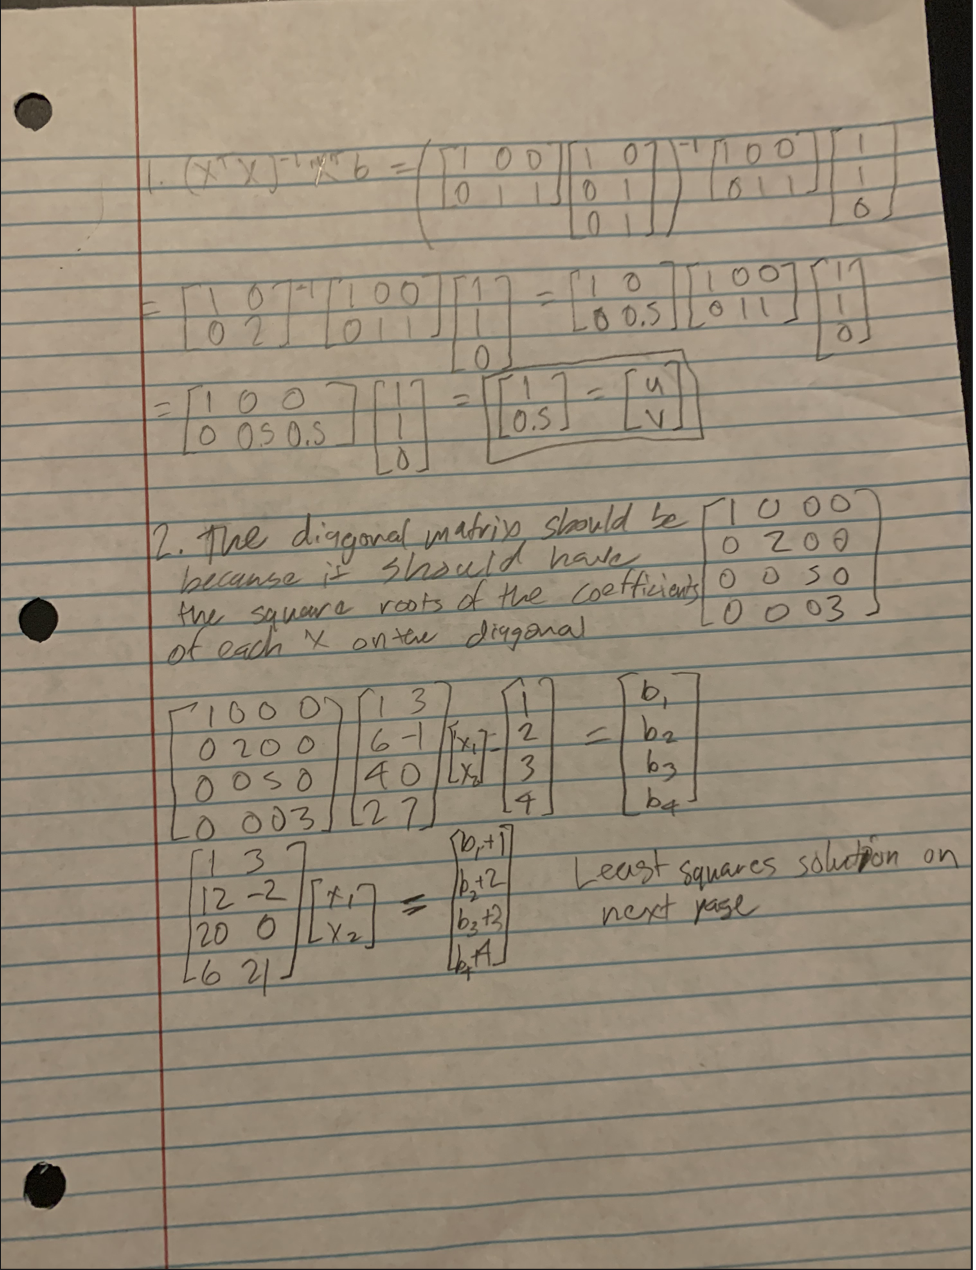 1. (XᵀX)⁻¹Xᵀb = ([1 0 0; 0 1 1][1 0; 0 1; 0 1])⁻¹ [1 0 0; 0 1 1][1; 1; 0]
= [1 0; 0 2]⁻¹ [1 0 0; 0 1 1][1; 1; 0] = [1 0; 0 0.5][1 0 0; 0 1 1][1; 1; 0]
= [1 0 0; 0 0.5 0.5][1; 1; 0] = [1; 0.5] = [u; v]
2. The diagonal matrix should be [1 0 0 0; 0 2 0 0; 0 0 5 0; 0 0 0 3]
because it should have
the square roots of the coefficients
of each x on the diagonal
[1 0 0 0; 0 2 0 0; 0 0 5 0; 0 0 0 3][1 3; 6 -1; 4 0; 2 7][x₁; x₂] - [1; 2; 3; 4] = [b₁; b₂; b₃; b₄]
[1 3; 12 -2; 20 0; 6 21][x₁; x₂] = [b₁+1; b₂+2; b₃+3; b₄+4]
Least squares solution on
next page